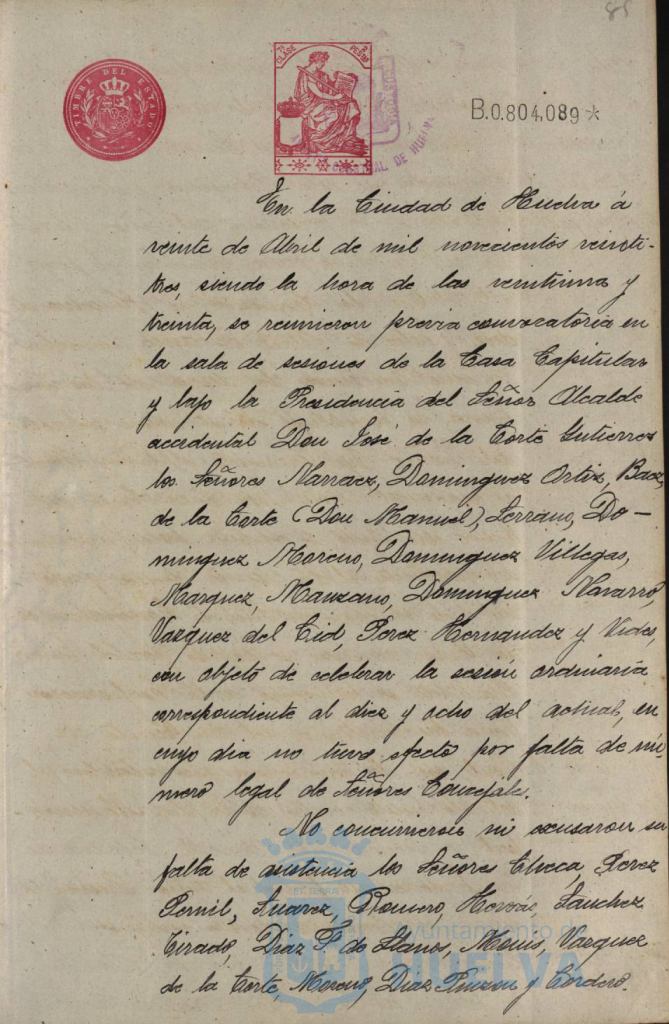 85
TIMBRE DEL ESTADO
CLASE 7ª 2 PESTAS
B.0.804,089*
En la Ciudad de Huelva á
veinte de Abril de mil novecientos veinti-
tres, siendo la hora de las veintiuna y
treinta, se reunieron previa convocatoria en
la sala de sesiones de la Casa Capitular
y bajo la Presidencia del Señor Alcalde
accidental Don José de la Corte Gutierrez
los Señores Narvaez, Dominguez Ortiz, Baez,
de la Corte (Don Manuel), Serrano, Do-
minguez Moreno, Dominguez Villegas,
Marquez, Manzano, Dominguez Navarro,
Vazquez del Cid, Perez Hernandez y Vides,
con objeto de celebrar la sesión ordinaria
correspondiente al diez y ocho del actual, en
cuyo dia no tuvo efecto por falta de nú
mero legal de Señores Concejale.
No concurrieron ni excusaron su
falta de asistencia los Señores Checa, Perez
Pernil, Suarez, Romero, Sánchez
Tirado, Diaz F. de Llanos, Monis, Vazquez
de la Corte, Moreno, Diaz Pinzon y Cordero.
Ayuntamiento de
HUELVA